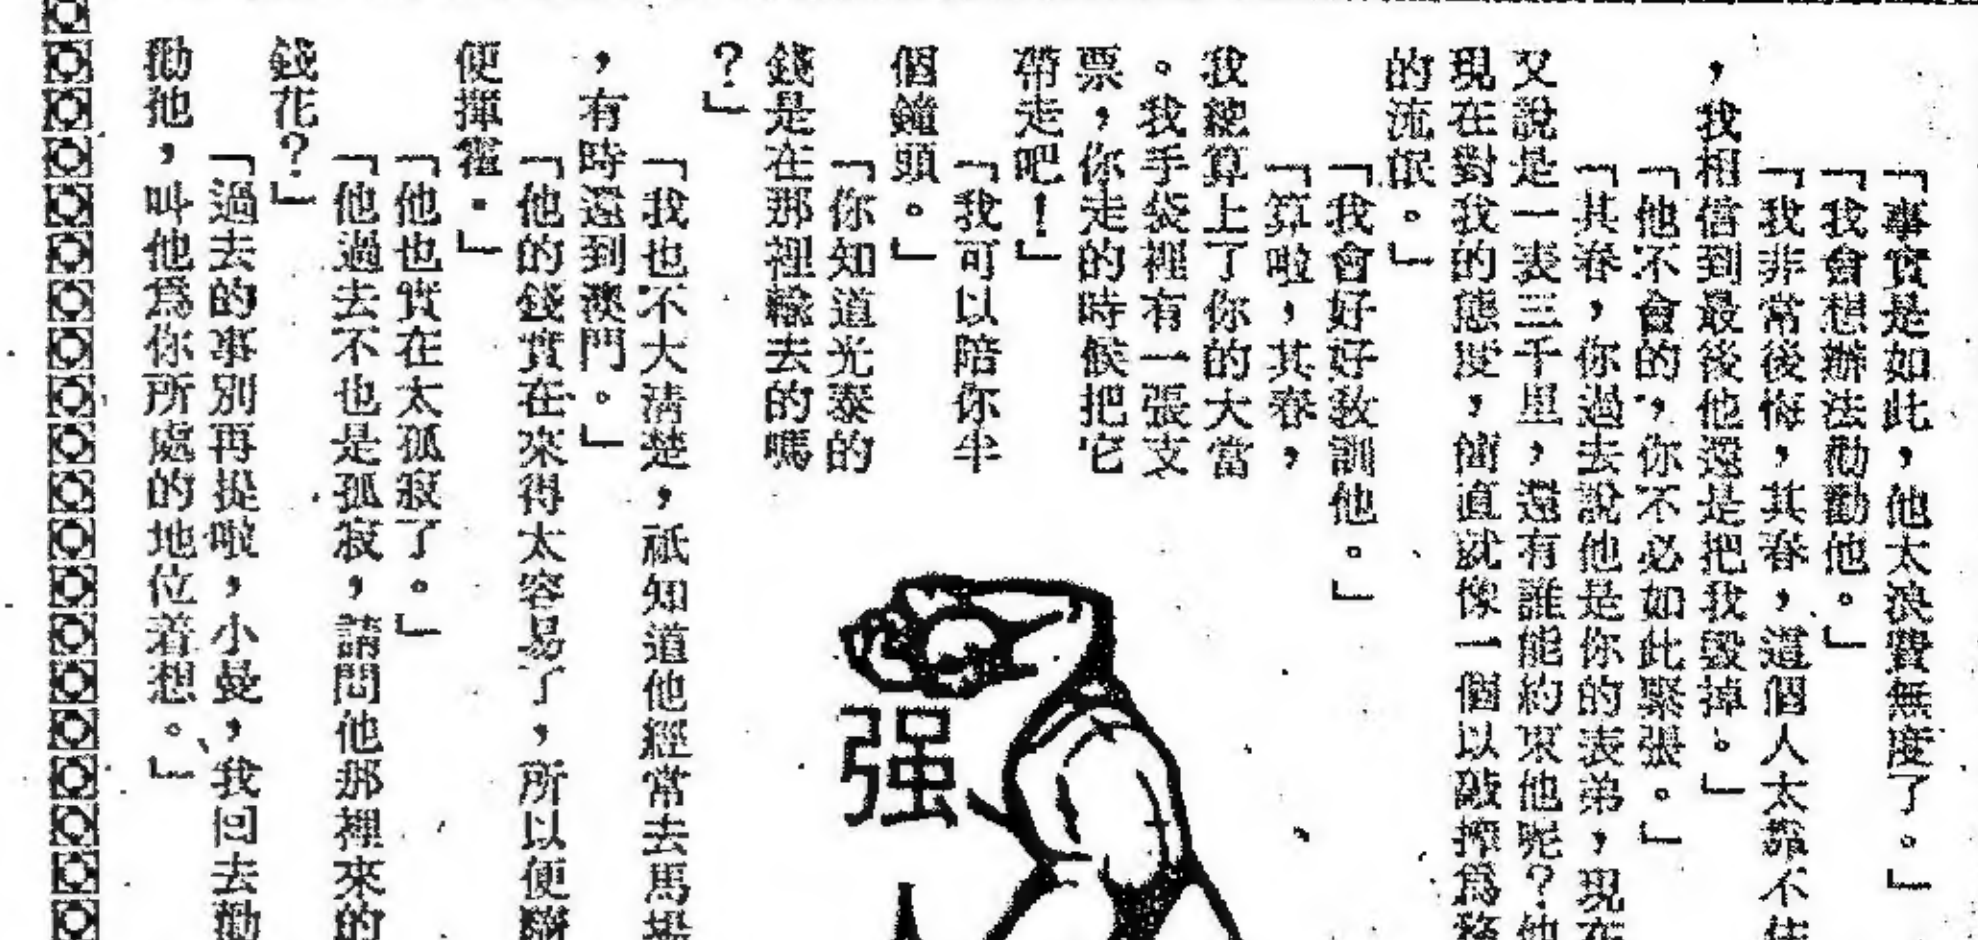 「事實是如此，他太浪費無度了。」
「我會想辦法勸勸他。」
「我非常後悔，其春，這個人太靠不住
，我相信到最後他還是把我毀掉。」
「他不會的，你不必如此緊張。」
「其春，你過去說他是你的表弟，現在
又說是一表三千里，還有誰能約束他呢？他
現在對我的態度，簡直就像一個以敲搾爲務
的流氓。」
「我會好好教訓他。」
「算啦，其春，
我總算上了你的大當
。我手袋裡有一張支
票，你走的時候把它
帶走吧！」
「我可以陪你半
個鐘頭。」
「你知道光泰的
錢是在那裡輸去的嗎
？」
「我也不大清楚，祇知道他經常去馬場
，有時還到澳門。」
「他的錢實在來得太容易了，所以便隨
便揮霍。」
「他也實在太孤寂了。」
「他過去不也是孤寂，請問他那裡來的
錢花？」
「過去的事別再提啦，小曼，我回去勸
勸他，叫他爲你所處的地位着想。」
强